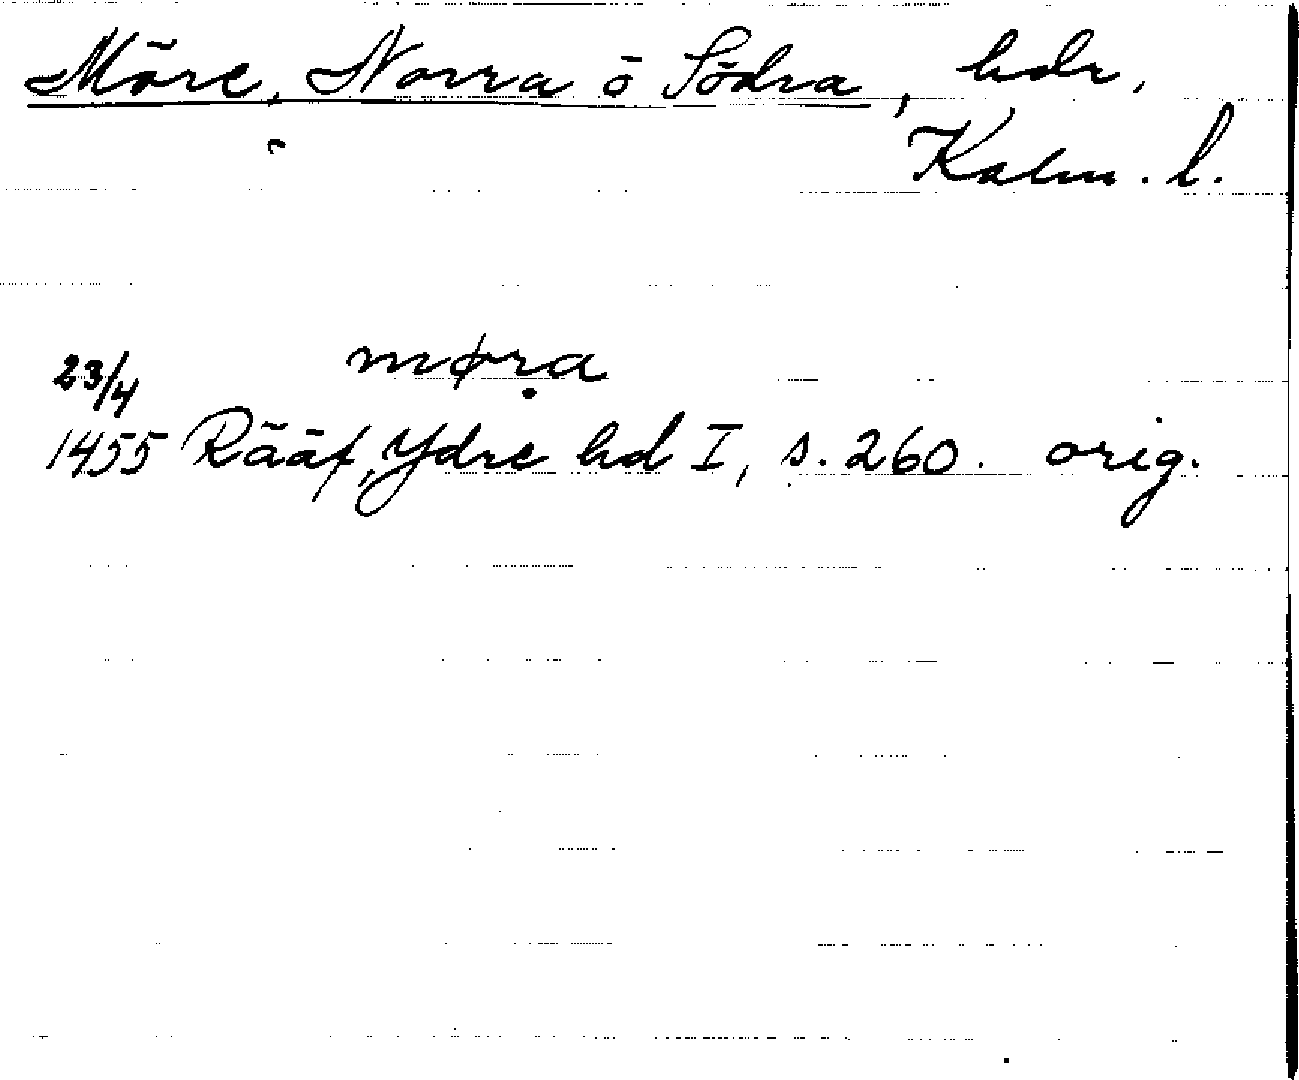 Möre, Norra o Södra, hdr,
Kalm. l.
23/4 møra
1455 Rääf, Ydre hd I, s. 260. orig.